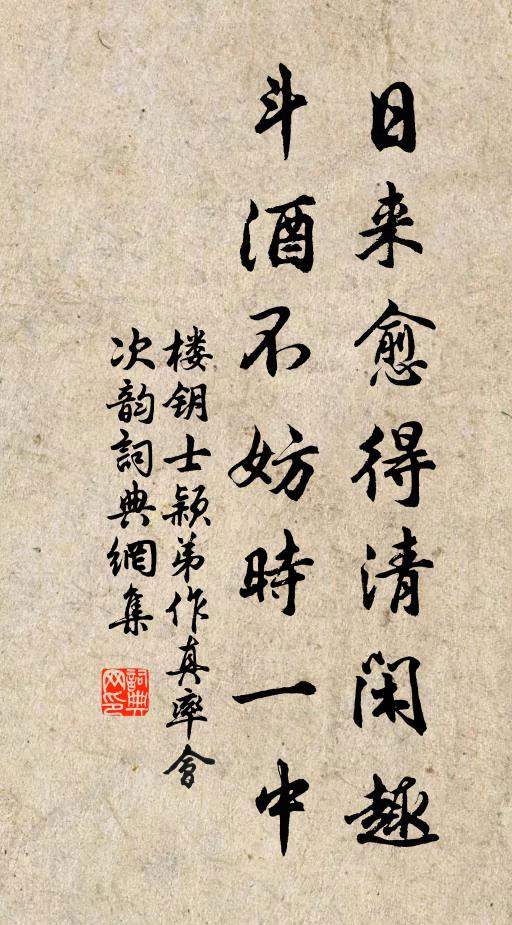 日来愈得清闲趣
斗酒不妨時一中
楼钥士颖弟作真率會
次韵詞典網集
詞典网印